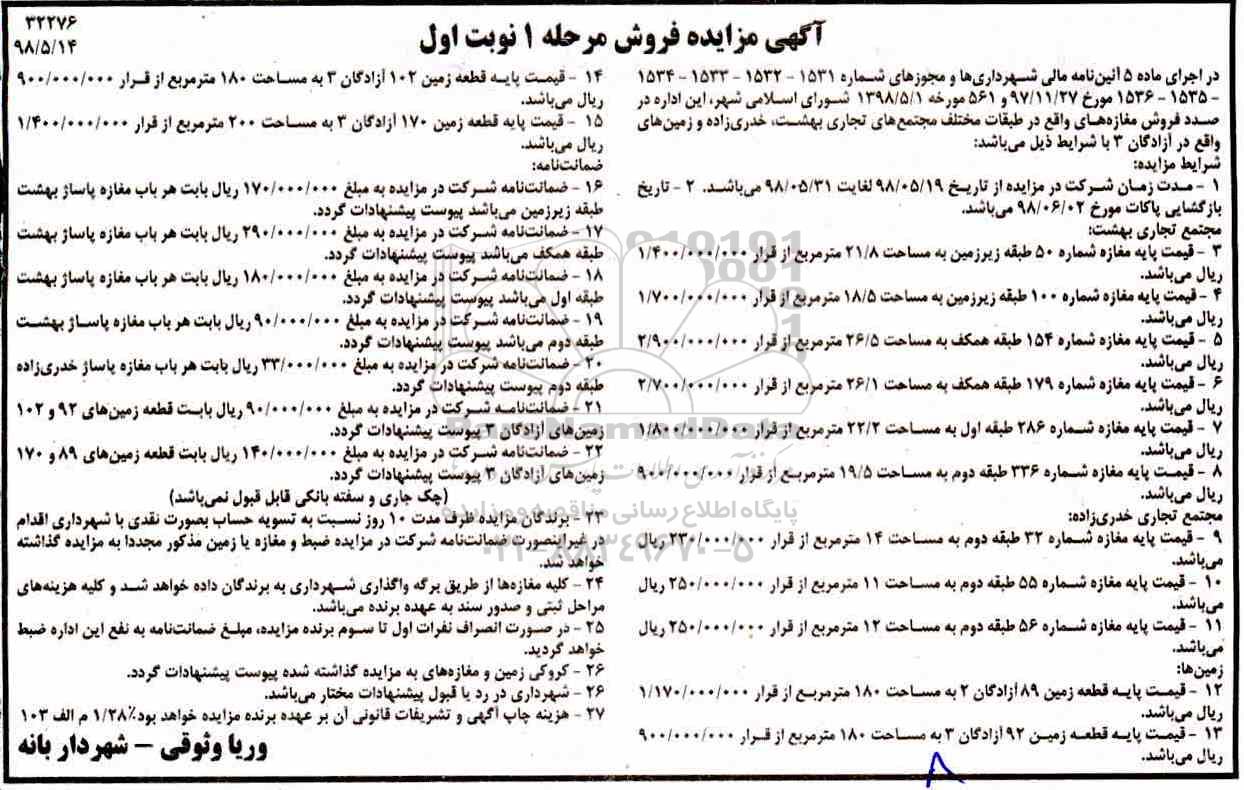 ۳۲۲۷۶
۹۸/۵/۱۴
آگهی مزایده فروش مرحله ۱ نوبت اول
در اجرای ماده ۵ آئین‌نامه مالی شهرداری‌ها و مجوزهای شماره ۱۵۳۱ - ۱۵۳۲ - ۱۵۳۳ - ۱۵۳۴
- ۱۵۳۵ - ۱۵۳۶ مورخ ۹۷/۱۱/۲۷ و ۵۶۱ مورخه ۱۳۹۸/۵/۱ شورای اسلامی شهر، این اداره در
صدد فروش مغازه‌های واقع در طبقات مختلف مجتمع‌های تجاری بهشت، خدری‌زاده و زمین‌های
واقع در آزادگان ۳ با شرایط ذیل می‌باشد:
شرایط مزایده:
۱ - مدت زمان شرکت در مزایده از تاریخ ۹۸/۰۵/۱۹ لغایت ۹۸/۰۵/۳۱ می‌باشد. ۲ - تاریخ
بازگشایی پاکات مورخ ۹۸/۰۶/۰۲ می‌باشد.
مجتمع تجاری بهشت:
۳ - قیمت پایه مغازه شماره ۵۰ طبقه زیرزمین به مساحت ۲۱/۸ مترمربع از قرار ۱/۴۰۰/۰۰۰/۰۰۰
ریال می‌باشد.
۴ - قیمت پایه مغازه شماره ۱۰۰ طبقه زیرزمین به مساحت ۱۸/۵ مترمربع از قرار ۱/۷۰۰/۰۰۰/۰۰۰
ریال می‌باشد.
۵ - قیمت پایه مغازه شماره ۱۵۴ طبقه همکف به مساحت ۲۶/۵ مترمربع از قرار ۲/۹۰۰/۰۰۰/۰۰۰
ریال می‌باشد.
۶ - قیمت پایه مغازه شماره ۱۷۹ طبقه همکف به مساحت ۲۶/۱ مترمربع از قرار ۲/۷۰۰/۰۰۰/۰۰۰
ریال می‌باشد.
۷ - قیمت پایه مغازه شماره ۲۸۶ طبقه اول به مساحت ۲۲/۲ مترمربع از قرار ۱/۸۰۰/۰۰۰/۰۰۰
ریال می‌باشد.
۸ - قیمت پایه مغازه شماره ۳۳۶ طبقه دوم به مساحت ۱۹/۵ مترمربع از قرار ۹۰۰/۰۰۰/۰۰۰
ریال می‌باشد.
مجتمع تجاری خدری‌زاده:
۹ - قیمت پایه مغازه شماره ۳۲ طبقه دوم به مساحت ۱۴ مترمربع از قرار ۲۳۰/۰۰۰/۰۰۰ ریال
می‌باشد.
۱۰ - قیمت پایه مغازه شماره ۵۵ طبقه دوم به مساحت ۱۱ مترمربع از قرار ۲۵۰/۰۰۰/۰۰۰ ریال
می‌باشد.
۱۱ - قیمت پایه مغازه شماره ۵۶ طبقه دوم به مساحت ۱۲ مترمربع از قرار ۲۵۰/۰۰۰/۰۰۰ ریال
می‌باشد.
زمین‌ها:
۱۲ - قیمت پایه قطعه زمین ۸۹ آزادگان ۲ به مساحت ۱۸۰ مترمربع از قرار ۱/۱۷۰/۰۰۰/۰۰۰
ریال می‌باشد.
۱۳ - قیمت پایه قطعه زمین ۹۲ آزادگان ۳ به مساحت ۱۸۰ مترمربع از قرار ۹۰۰/۰۰۰/۰۰۰
ریال می‌باشد.
۱۴ - قیمت پایه قطعه زمین ۱۰۲ آزادگان ۳ به مساحت ۱۸۰ مترمربع از قرار ۹۰۰/۰۰۰/۰۰۰
ریال می‌باشد.
۱۵ - قیمت پایه قطعه زمین ۱۷۰ آزادگان ۳ به مساحت ۲۰۰ مترمربع از قرار ۱/۴۰۰/۰۰۰/۰۰۰
ریال می‌باشد.
ضمانت‌نامه:
۱۶ - ضمانت‌نامه شرکت در مزایده به مبلغ ۱۷۰/۰۰۰/۰۰۰ ریال بابت هر باب مغازه پاساژ بهشت
طبقه زیرزمین می‌باشد پیوست پیشنهادات گردد.
۱۷ - ضمانت‌نامه شرکت در مزایده به مبلغ ۲۹۰/۰۰۰/۰۰۰ ریال بابت هر باب مغازه پاساژ بهشت
طبقه همکف می‌باشد پیوست پیشنهادات گردد.
۱۸ - ضمانت‌نامه شرکت در مزایده به مبلغ ۱۸۰/۰۰۰/۰۰۰ ریال بابت هر باب مغازه پاساژ بهشت
طبقه اول می‌باشد پیوست پیشنهادات گردد.
۱۹ - ضمانت‌نامه شرکت در مزایده به مبلغ ۹۰/۰۰۰/۰۰۰ ریال بابت هر باب مغازه پاساژ بهشت
طبقه دوم می‌باشد پیوست پیشنهادات گردد.
۲۰ - ضمانت‌نامه شرکت در مزایده به مبلغ ۳۳/۰۰۰/۰۰۰ ریال بابت هر باب مغازه پاساژ خدری‌زاده
طبقه دوم پیوست پیشنهادات گردد.
۲۱ - ضمانت‌نامه شرکت در مزایده به مبلغ ۹۰/۰۰۰/۰۰۰ ریال بابت قطعه زمین‌های ۹۲ و ۱۰۲
زمین‌های آزادگان ۳ پیوست پیشنهادات گردد.
۲۲ - ضمانت‌نامه شرکت در مزایده به مبلغ ۱۴۰/۰۰۰/۰۰۰ ریال بابت قطعه زمین‌های ۸۹ و ۱۷۰
زمین‌های آزادگان ۳ پیوست پیشنهادات گردد.
(چک جاری و سفته بانکی قابل قبول نمی‌باشد)
۲۳ - برندگان مزایده ظرف مدت ۱۰ روز نسبت به تسویه حساب بصورت نقدی با شهرداری اقدام
در غیراینصورت ضمانت‌نامه شرکت در مزایده ضبط و مغازه یا زمین مذکور مجددا به مزایده گذاشته
خواهد شد.
۲۴ - کلیه مغازه‌ها از طریق برگه واگذاری شهرداری به برندگان داده خواهد شد و کلیه هزینه‌های
مراحل ثبتی و صدور سند به عهده برنده می‌باشد.
۲۵ - در صورت انصراف نفرات اول تا سوم برنده مزایده، مبلغ ضمانت‌نامه به نفع این اداره ضبط
خواهد گردید.
۲۶ - کروکی زمین و مغازه‌های به مزایده گذاشته شده پیوست پیشنهادات گردد.
۲۶ - شهرداری در رد یا قبول پیشنهادات مختار می‌باشد.
۲۷ - هزینه چاپ آگهی و تشریفات قانونی آن بر عهده برنده مزایده خواهد بود٪۱/۲۸ م الف ۱۰۳
وریا وثوقی - شهردار بانه
ParsNamadData
پایگاه اطلاع رسانی مناقصه و مزایده
۰۲۱-۸۸۳۴۹۶۷۰-۵